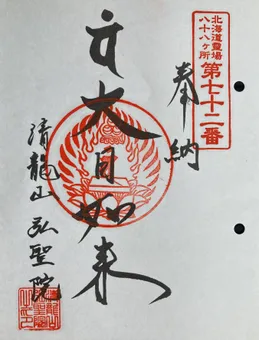 北海道霊場
八十八ヶ所
第七十二番
奉納
大日如来
清龍山 弘聖院